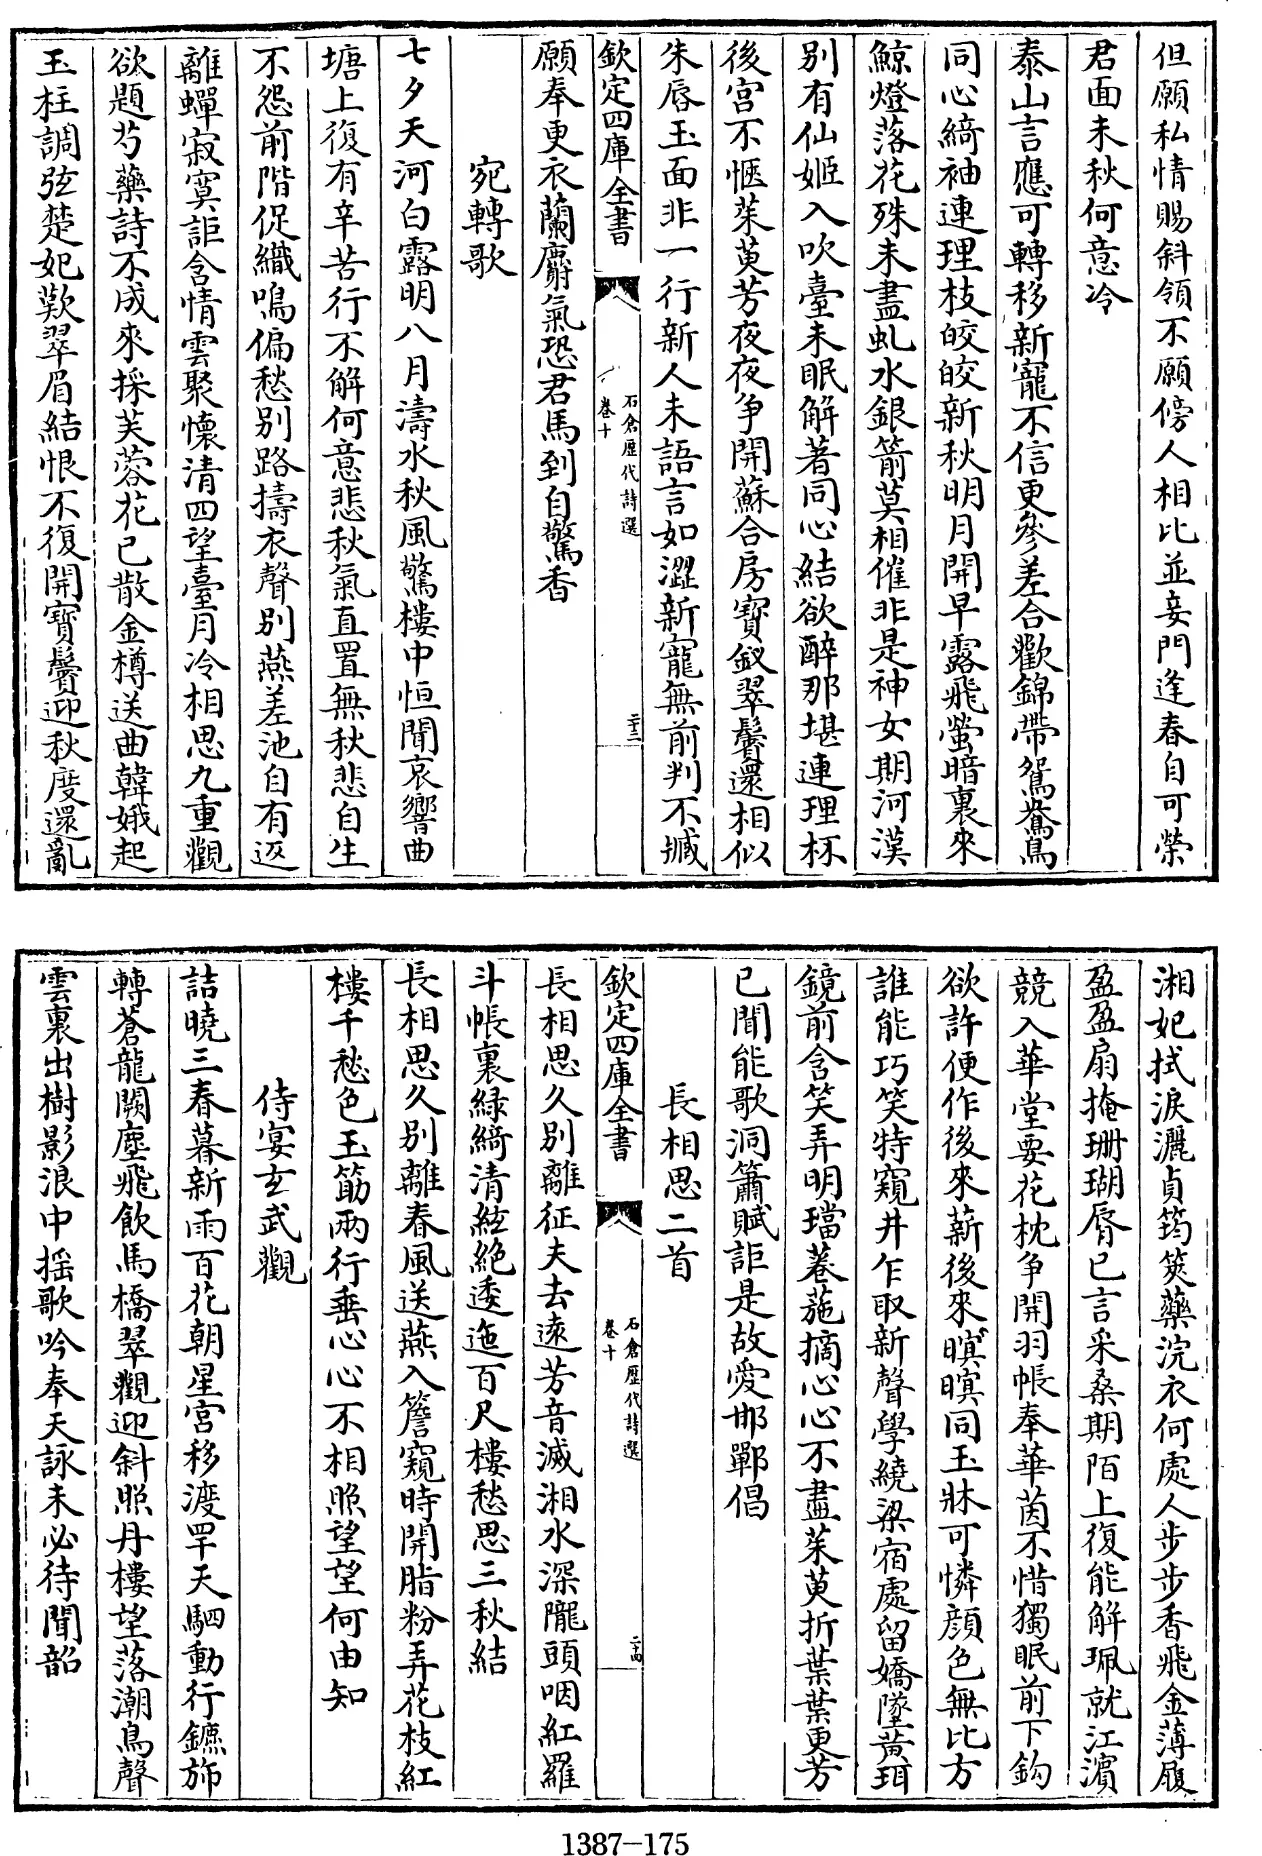 但願私情賜斜領不願傍人相比並妾門逢春自可榮
君面未秋何意冷
泰山言應可轉移新寵不信更參差合歡錦帶鴛鴦鳥
同心綺袖連理枝皎皎新秋明月開早露飛螢暗裏來
鯨燈落花殊未盡虬水銀箭莫相催非是神女期河漢
別有仙姬入吹臺未眠解著同心結欲醉那堪連理杯
後宮不愜茱萸芳夜夜争開蘇合房寳釵翠鬢還相似
朱唇玉面非一行新人未語言如澀新寵無前判不臧
欽定四庫全書
石倉歷代詩選
卷十
二十三
願奉更衣蘭麝氣恐君馬到自驚香
宛轉歌
七夕天河白露明八月濤水秋風驚樓中恒聞哀響曲
塘上復有辛苦行不解何意悲秋氣直置無秋悲自生
不怨前階促織鳴偏愁別路擣衣聲別燕差池自有返
離蟬寂寞詎含情雲聚懷清四望臺月冷相思九重觀
欲題芍藥詩不成來採芙蓉花已散金樽送曲韓娥起
玉柱調弦楚妃歎翠眉結恨不復開寳鬢迎秋度還亂
湘妃拭淚灑貞筠筴藥浣衣何處人步步香飛金薄履
盈盈扇掩珊瑚脣已言采桑期陌上復能解珮就江濱
競入華堂要花枕争開羽帳奉華茵不惜獨眠前下鈎
欲許便作後來薪後來暝暝同玉牀可憐顔色無比方
誰能巧笑特窺井乍取新聲學繞梁宿處留嬌墜黄珥
鏡前含笑弄明璫菤葹摘心心不盡茱萸折葉葉更芳
已聞能歌洞簫賦詎是故愛邯鄲倡
長相思二首
欽定四庫全書
石倉歷代詩選
卷十
二十四
長相思久別離征夫去遠芳音滅湘水深隴頭咽紅羅
斗帳裏緑綺清絃絶逶迤百尺樓愁思三秋結
長相思久別離春風送燕入簷窺時開脂粉弄花枝紅
樓千愁色玉筯兩行垂心心不相照望望何由知
侍宴玄武觀
詰曉三春暮新雨百花朝星宫移渡罕天駟動行鑣斾
轉蒼龍闕塵飛飲馬橋翠觀迎斜照丹樓望落潮鳥聲
雲裏出樹影浪中摇歌吟奉天詠未必待聞韶
1387-175